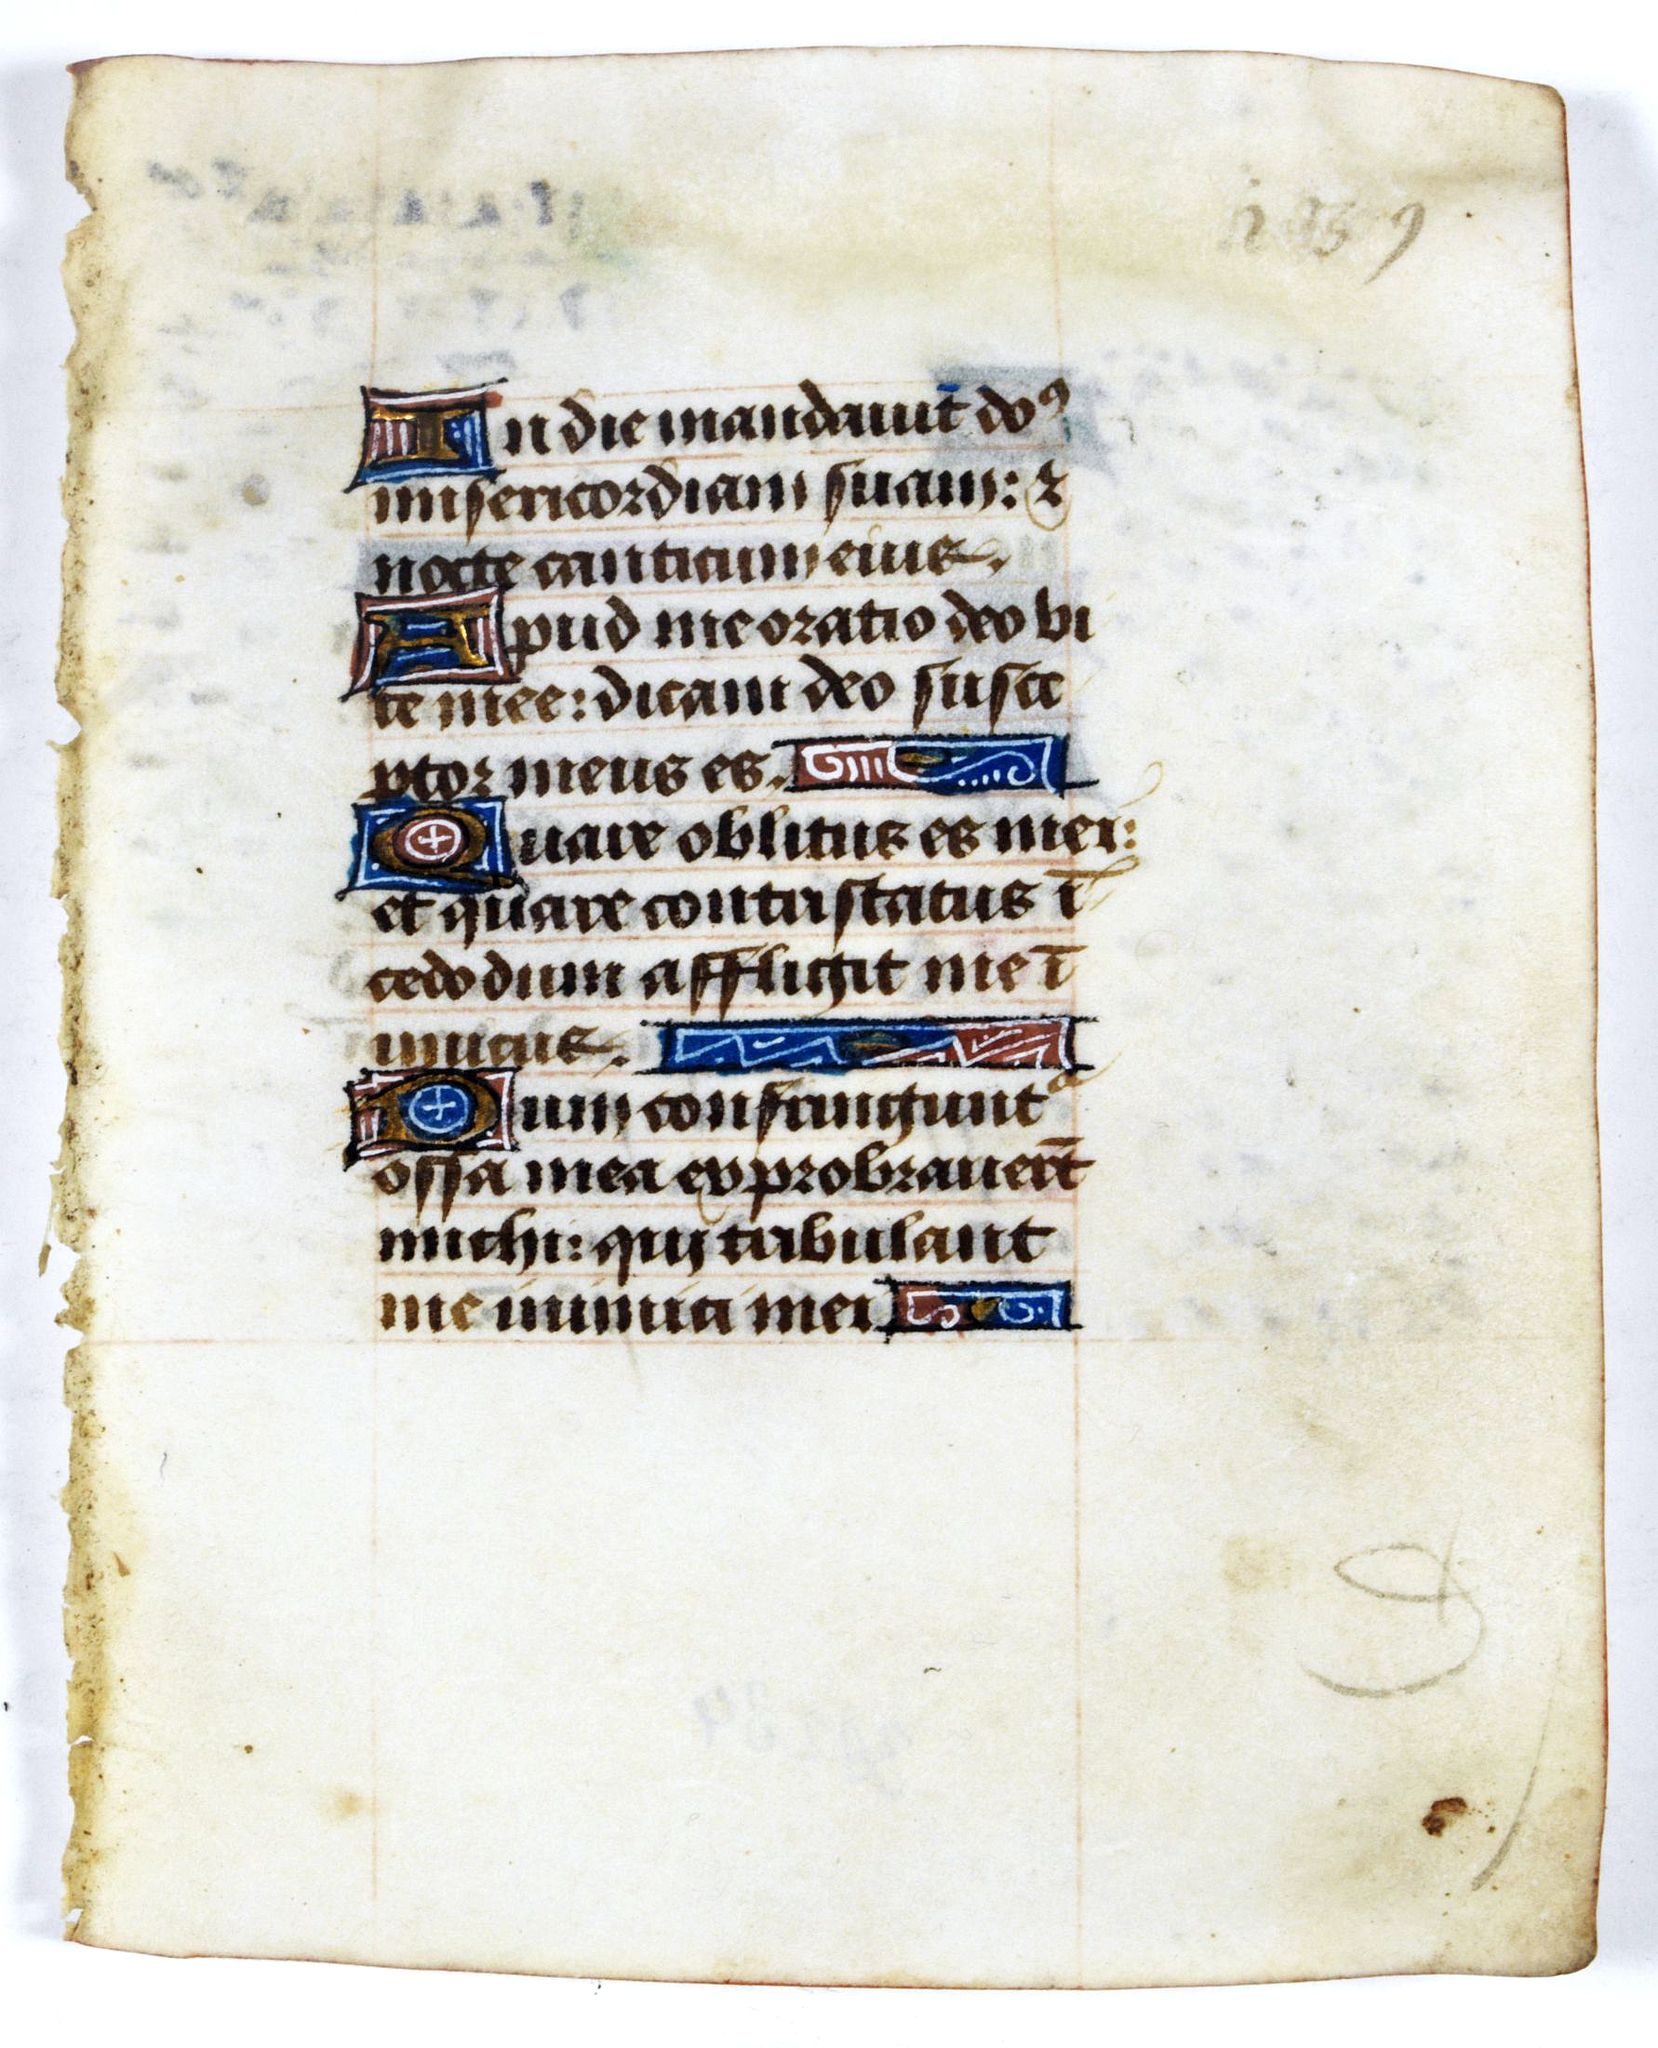 In die mandauit̄ do⁹
misericordiam suam: ⁊
nocte canticum eius.
Apud me oratio deo vi
te mee: dicam deo susce
ptor meus es.
Quare oblitus es mei:
et quare contristatus ī
cedo dum affligit me ī
imicus.
Dum confringunt᷑
ossa mea exprobrauerūt
michi: qui tribulant
me inimici mei